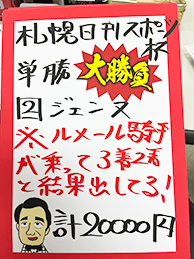 札幌日刊スポーツ杯
単勝 大勝負
② ジェンヌ
※ルメール騎手
が乗って3着2着
と結果出してる!
計20000円